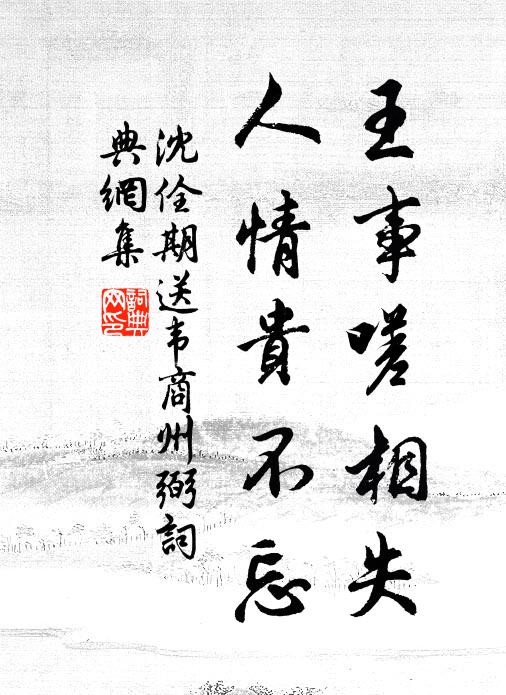 王事嗟相失
人情貴不忘
沈佺期送韦商州弼詞
典網集
詞典
网印